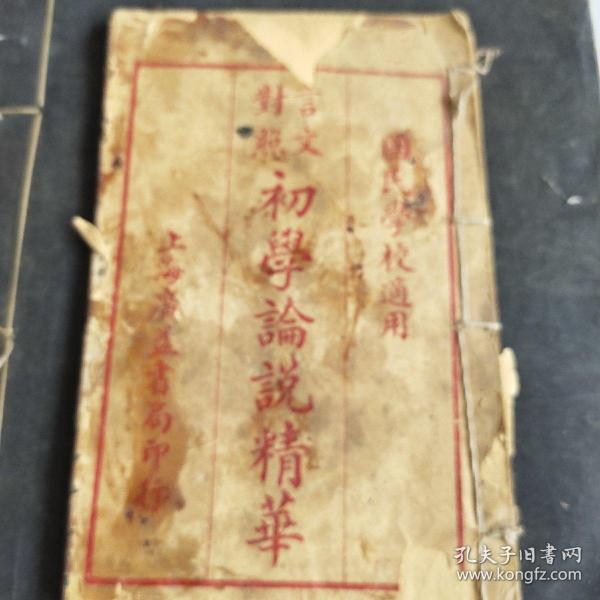 國民學校適用
言文
對照
初學論說精華
上海廣益書局印行
孔夫子旧书网
www.kongfz.com